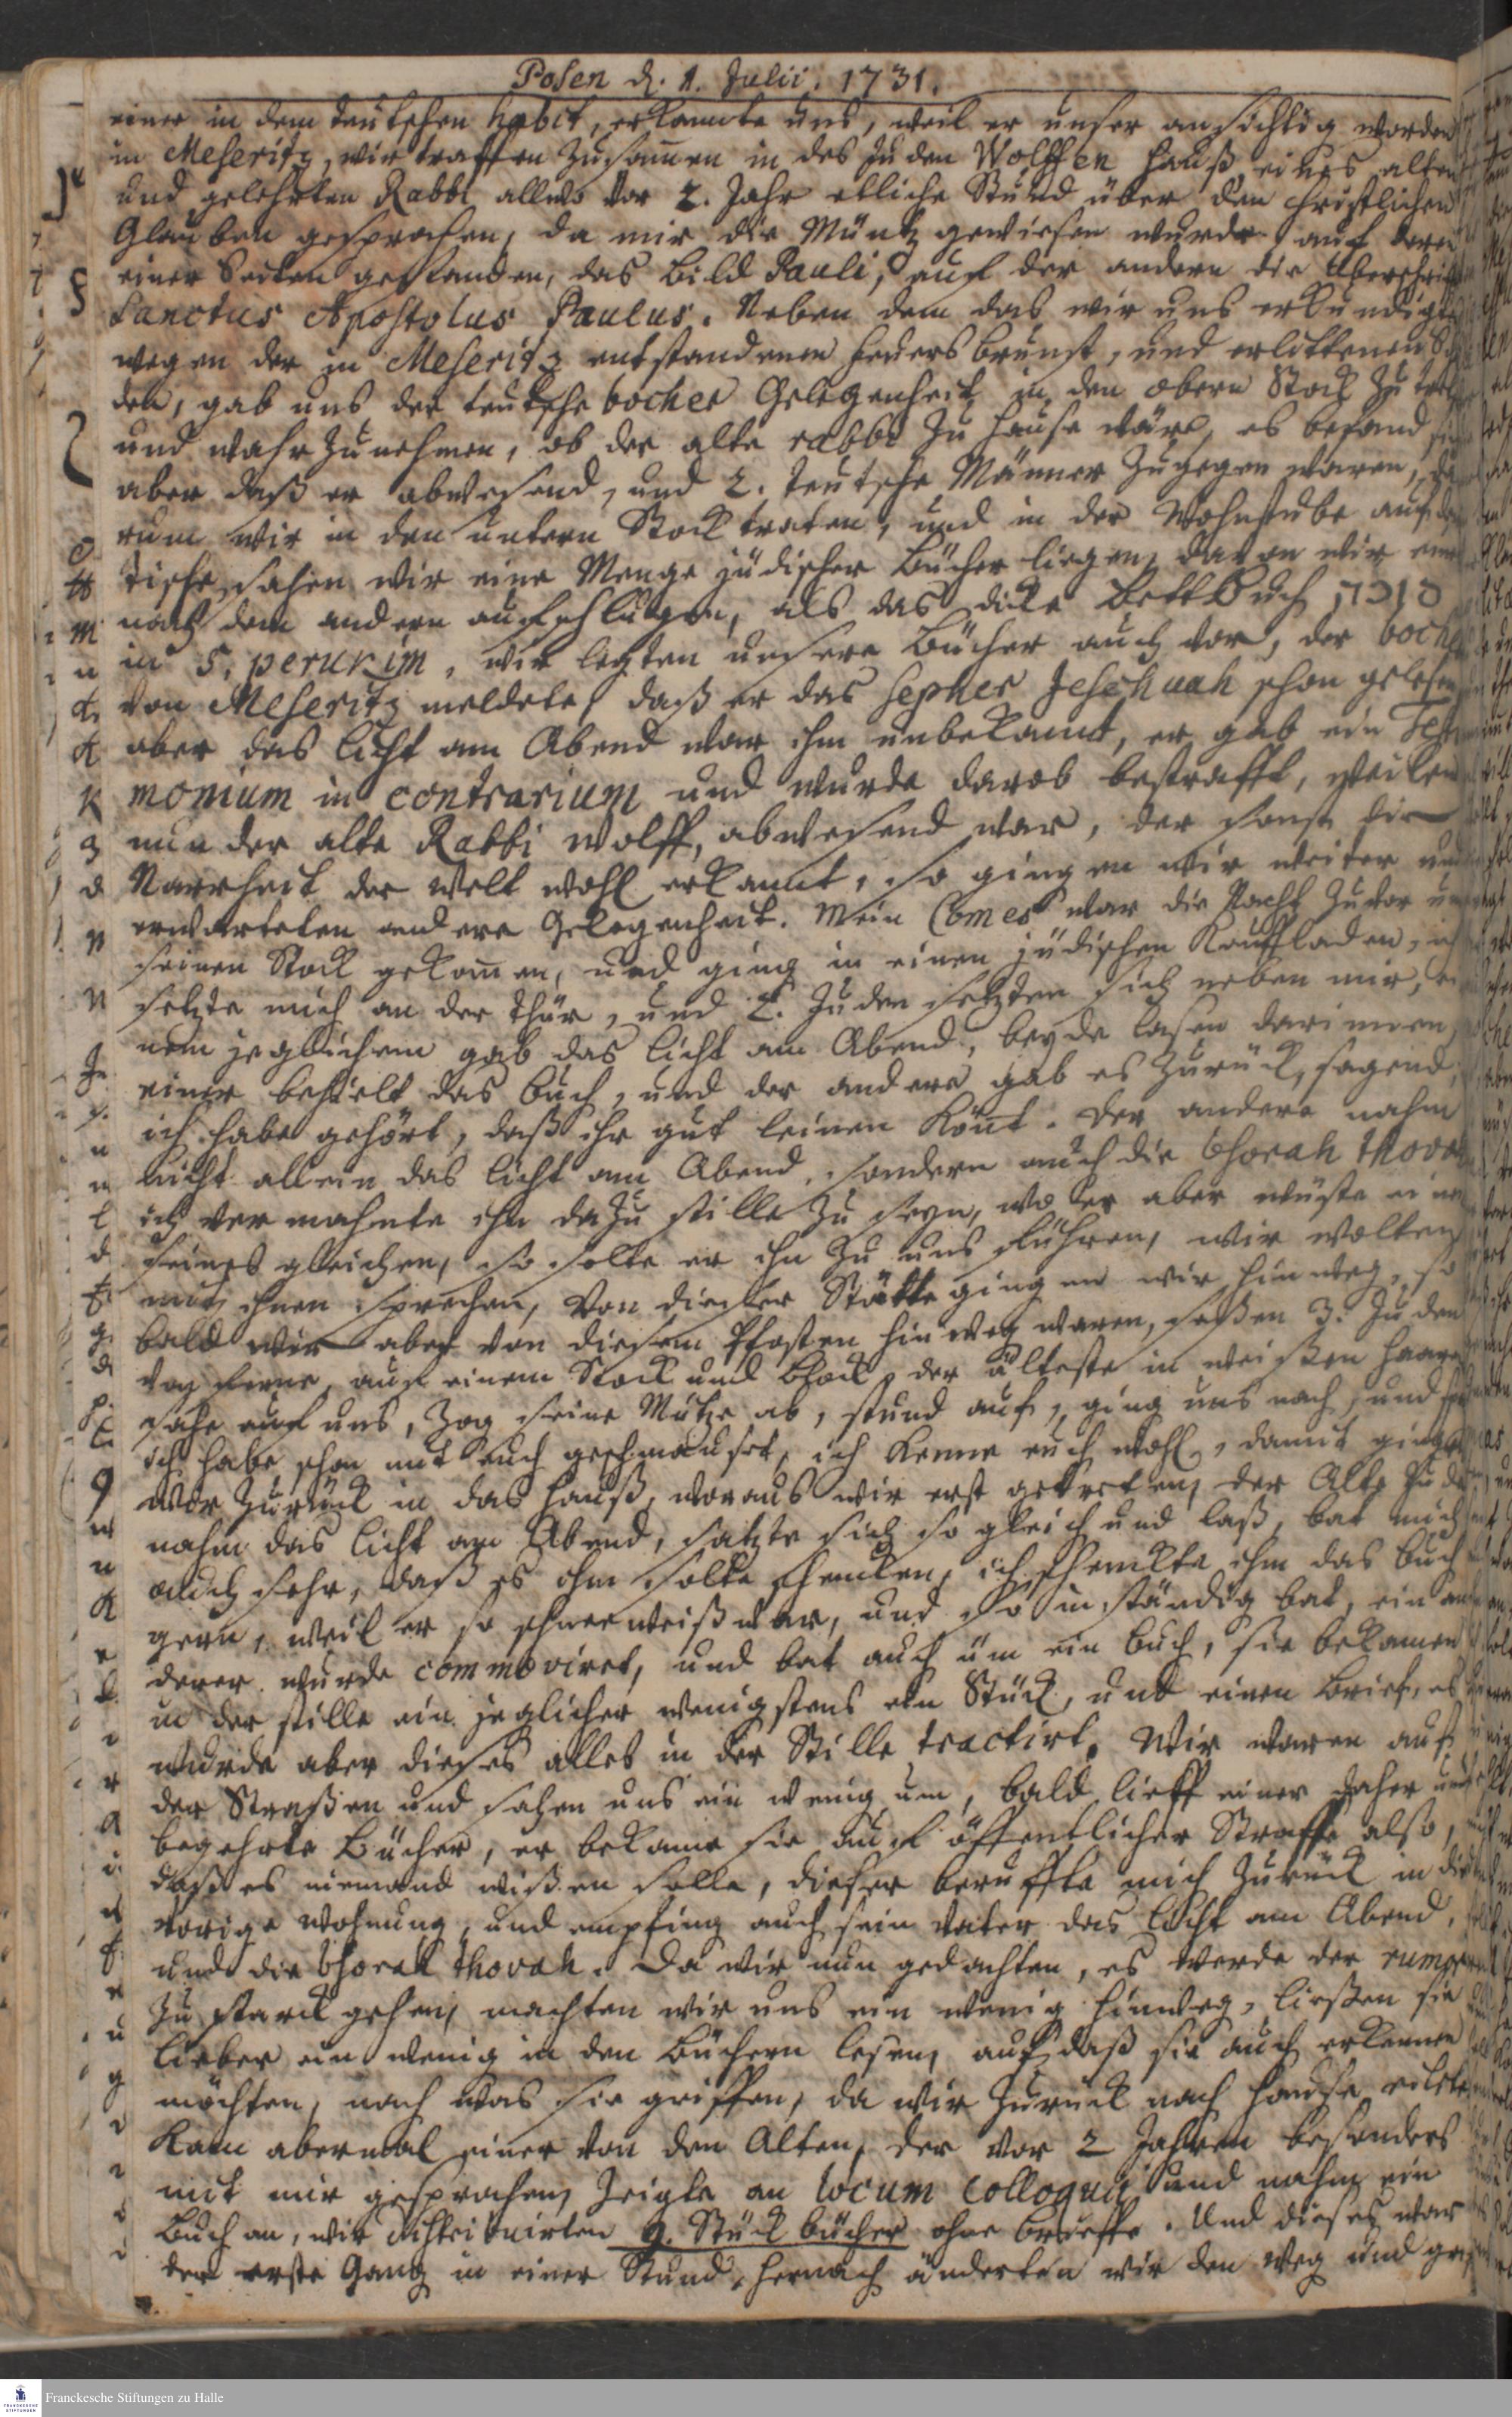 Posen d. 1. Julii. 1731.
einer in dem teutschen habit, erkannte uns, weil er unser ansichtig worden
in Meseritz, wir traffen zusam̄en in des Juden Wolffen Hauß, eines alten
und gelehrten Rabbi allwo vor 2. Jahr etliche Stund über den christlichen
Glauben gesprochen, da mir die Müntz gewiesen wurde, auf deren
einer Seiten gestanden, das Bild Pauli, auf der andern die Uberschrifft
Sanctus Apostolus Paulus. Neben dem das wir uns erkundigten
wegen der in Meseritz entstandenen Feuersbrunst, und erlittenen
den, gab uns der teutsche bocher Gelegenheit, in den obern Stock zu
und wahrzunehmen, ob der alte rabbi zu Hause wäre, es befand sich
aber daß er abwesend, und 2. teutsche Männer zugegen waren,
rum wir in den untern Stock traten, und in der Wohnstube auf dem
Tische sahen wir eine Menge jüdischer Bücher liegen, davon wir eines
nach dem andern aufschlugen, als das dicke Bettbuch
in 5. perukim, wir legten unsere Bücher auch vor, der bocher
von Meseritz meldete, daß er das sepher Jeschuah schon gelesen
aber das Licht am Abend war ihm unbekannt, er gab ein Testi
monium in contrarium und wurde darob bestrafft, weilen
nun der alte Rabbi Wolff, abwesend war, der sonst die
Narrheit der Welt wohl erkannt, so gingen wir weiter und
erwarteten andere Gelegenheit. Mein Comes war die Nacht zuvor um
seinen Stock gekom̄en, und ging in einen jüdischen Kauffladen, ich
setzte mich an der Thür, und 2. Juden setzten sich neben mir, ei
nem jeglichem gab das Licht am Abend, beyde lasen darinnen,
einer behielt das Buch, und der andere gab es zurück, sagend,
ich habe gehört, daß ihr gut leinen könt. Der andere nahm
nicht allein das Licht am Abend, sondern auch die thorah thovah
ich vermahnte ihn dazu stille zu seyn, wo er aber wüste einen
seines gleichen, so solte er ihn zu uns führen, wir wolten
mit ihnen sprechen, Von dieser Stätte gingen wir hinweg, so
bald wir aber von diesem Pfosten hinweg waren, saßen 3. Juden
von ferne, auf einem Stock und Block, der älteste in weißen Haaren
sahe auf uns, zog seine Mütze ab, stund auf, ging uns nach, und
ich habe schon mit euch geschmauset, ich kenne euch wohl, damit gingen
wir zurück in das Hauß, woraus wir erst getreten, der Alte Jude
nahm das Licht am Abend, satzte sich so gleich und laß, bat mich
auch sehr, daß es ihm solte schencken, ich schenckte ihm das Buch
gern, weil er so schneeweiß war, und so inständig bat, ein an
derer wurde commoviret, und bat auch um ein Buch, sie bekamen
in der stille ein jeglicher wenigstens ein Stück, und einen Brief, es
wurde aber dieses alles in der Stille tractirt. Wir waren auf
der Straßen und sahen uns ein wenig um, bald lieff einer daher und
begehrte Bücher, er bekame sie auf öffentlicher Strasse also,
daß es niemand wißen solle, dieser beruffte mich zurück in die
vorige Wohnung, und empfing auch sein Vater das Licht am Abend,
und die thorah thovah. Da wir nun gedachten, es werde der rumor
zu starck gehen, machten wir uns ein wenig hinweg, ließen sie
lieber ein wenig in den Büchern lesen, auf daß sie auch erkennen
möchten, nach was sie griffen, da wir zurück nach Hause eilete
kam abermal einer von den Alten, der vor 2 Jahren besonders
mit mir gesprochen, zeigte an locum colloquii und nahm ein
Buch an, wir distribuirten 9. Stück bücher ohne brieffe. Und dieses war
der erste Gang in einer Stund, hernach änderten wir den Weg und
Franckesche Stiftungen zu Halle